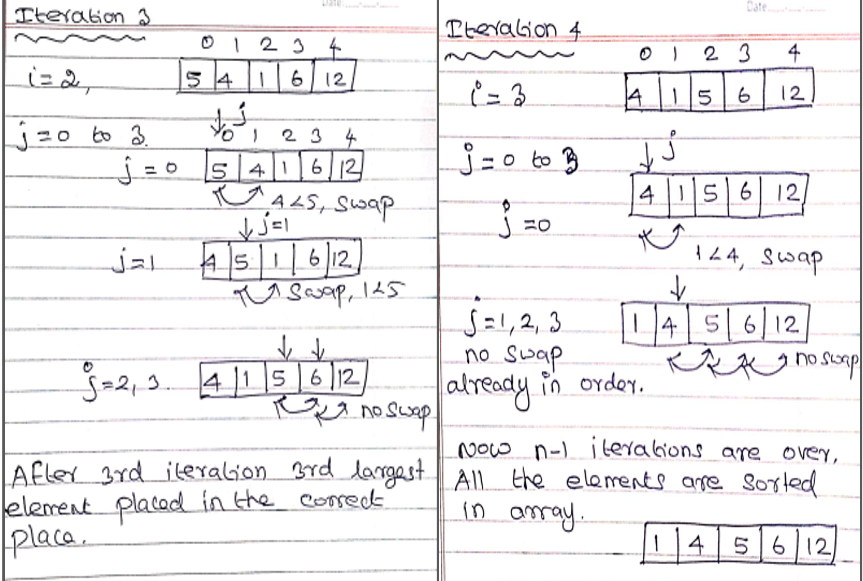 Iteration 3
0 1 2 3 4
i=2, 5 4 1 6 12
j
j=0 to 3. 0 1 2 3 4
j=0 5 4 1 6 12
4<5, swap
j=1
j=1 4 5 1 6 12
swap, 1<5
j=2, 3. 4 1 5 6 12
no swap
After 3rd iteration 3rd largest
element placed in the correct
place.
Date
Iteration 4
0 1 2 3 4
i=3 4 1 5 6 12
j=0 to 3 j
4 1 5 6 12
j=0
1<4, swap
j=1, 2, 3 1 4 5 6 12
no swap no swap
already in order.
Now n-1 iterations are over,
All the elements are sorted
in array.
1 4 5 6 12